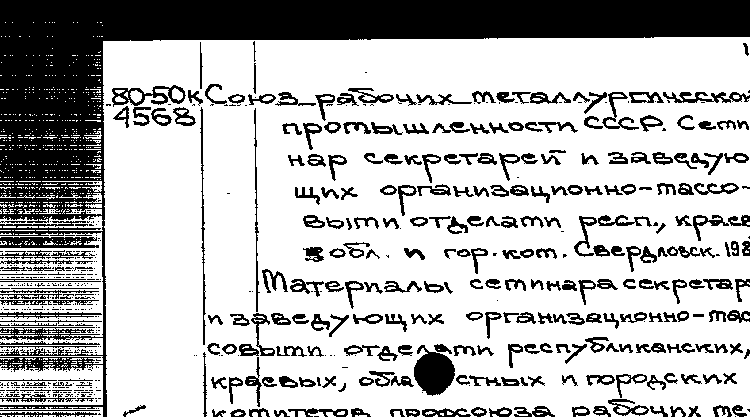 80-50к Союз рабочих металлургической
4568 промышленности СССР. Семи
нар секретарей и заведую
щих организационно-массо-
выми отделами респ., краев
обл. и гор. ком. Свердловск. 198
Материалы семинара секретар
и заведующих организационно-мас
совыми отделами республиканских,
краевых, областных и городских
комитетов профсоюза рабочих ме